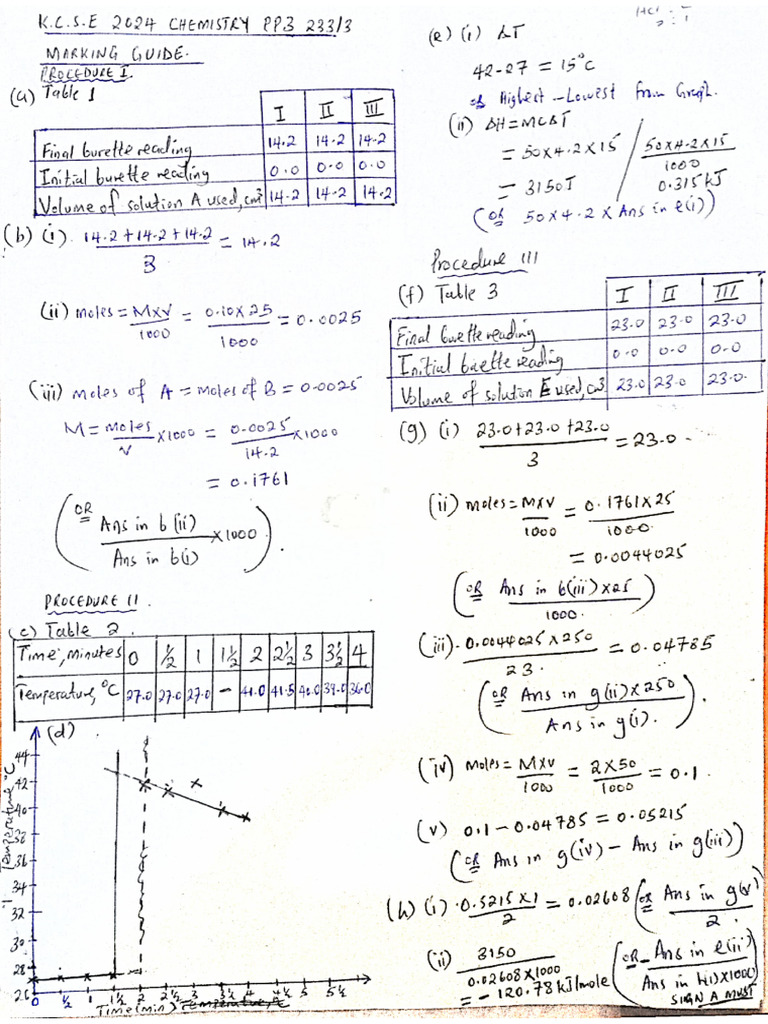 K.C.S.E 2024 CHEMISTRY PP3 233/3
MARKING GUIDE.
PROCEDURE I.
(a) Table 1
I II III
Final burette reading 14.2 14.2 14.2
Initial burette reading 0.0 0.0 0.0
Volume of solution A used, cm³ 14.2 14.2 14.2
(b) (i) 14.2 + 14.2 + 14.2 / 3 = 14.2
(ii) moles = MxV / 1000 = 0.10 x 25 / 1000 = 0.0025
(iii) moles of A = moles of B = 0.0025
M = moles / V x 1000 = 0.0025 / 14.2 x 1000
= 0.1761
(OR Ans in b(ii) / Ans in b(i) x 1000).
PROCEDURE II.
(c) Table 2.
Time, minutes 0 ½ 1 1½ 2 2½ 3 3½ 4
Temperature, °C 27.0 27.0 27.0 – 41.0 41.5 40.0 39.0 36.0
(d)
Temperature °C
44
42
40
38
36
34
32
30
28
26
0 ½ 1 1½ 2 2½ 3 3½ 4 4½ 5 5½
Time (min)
(e) (i) ΔT
42 - 27 = 15°C
or Highest - Lowest from Graph.
(ii) ΔH = MCΔT
= 50 x 4.2 x 15 / 50 x 4.2 x 15 / 1000
= 3150J 0.315kJ
(OR 50 x 4.2 x Ans in e(i))
Procedure III
(f) Table 3
I II III
Final burette reading 23.0 23.0 23.0
Initial burette reading 0.0 0.0 0.0
Volume of solution E used, cm³ 23.0 23.0 23.0
(g) (i) 23.0 + 23.0 + 23.0 / 3 = 23.0
(ii) moles = MxV / 1000 = 0.1761 x 25 / 1000
= 0.0044025
(OR Ans in b(iii) x 25 / 1000.)
(iii) 0.0044025 x 250 / 23. = 0.04785
(OR Ans in g(ii) x 250 / Ans in g(i).)
(iv) Moles = MxV / 1000 = 2 x 50 / 1000 = 0.1.
(v) 0.1 - 0.04785 = 0.05215
(OR Ans in g(iv) - Ans in g(iii))
(h) (i) 0.5215 x 1 / 2 = 0.02608 (OR Ans in g(v) / 2.)
(ii) 3150 / 0.02608 x 1000 (OR - Ans in e(ii) / Ans in h(i) x 1000)
= -120.78 kJ/mole SIGN A MUST